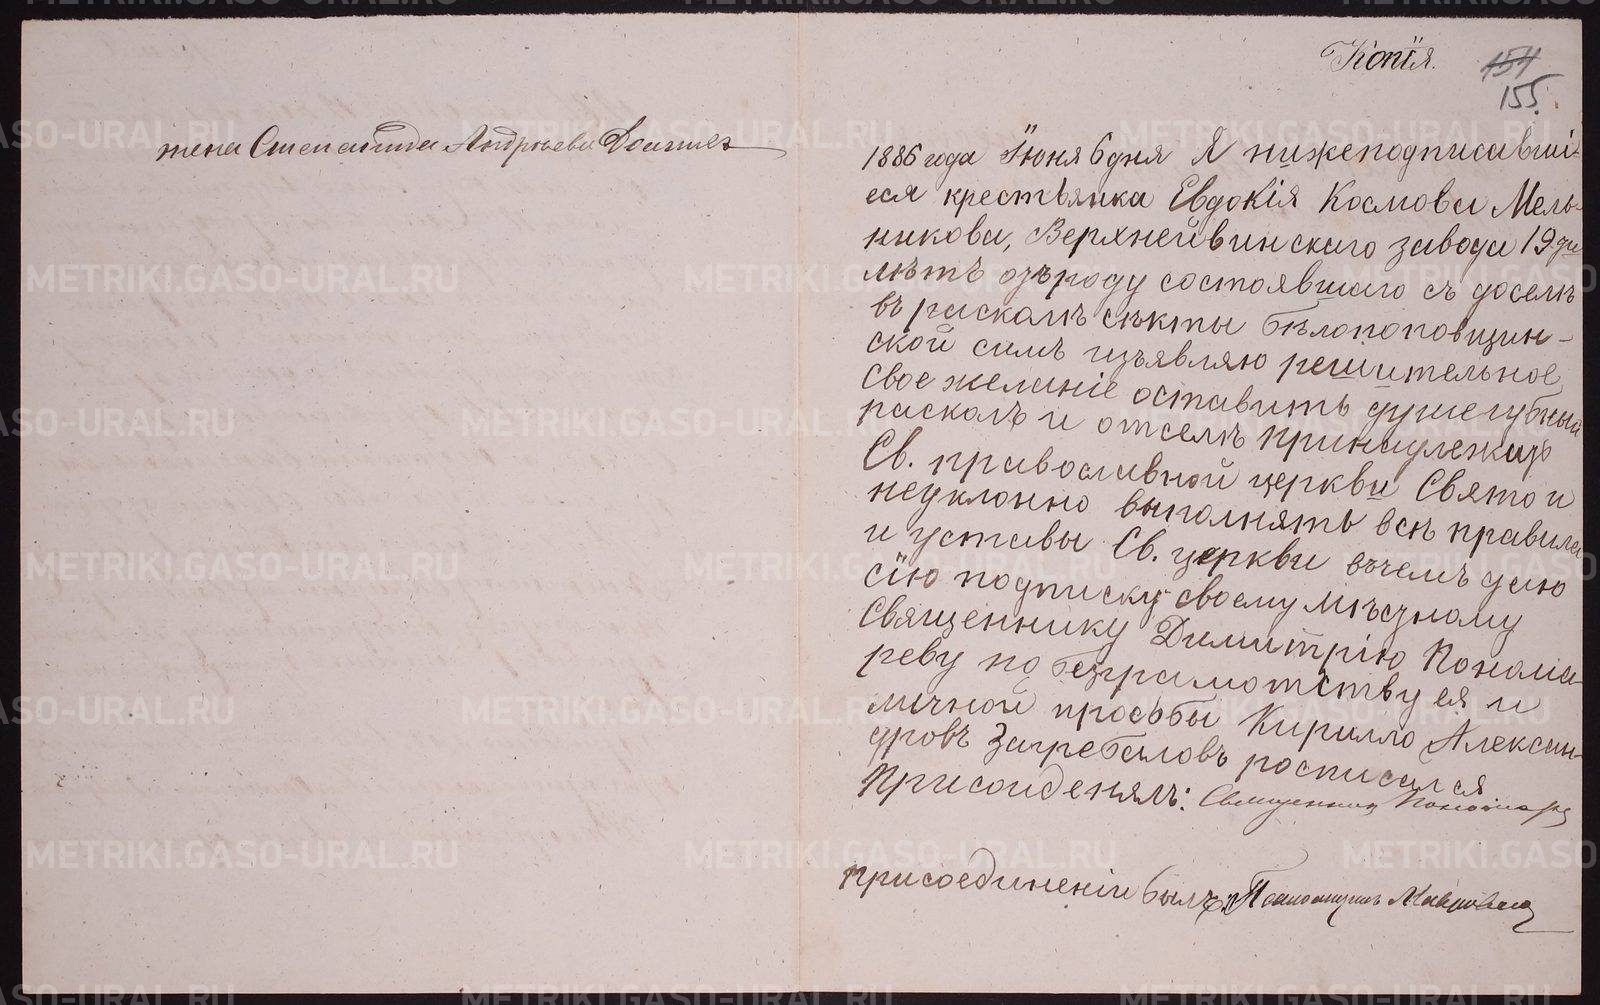 жена Степанида Андреева
Копія.
154
155.
1886 года Іюня 6 дня Я нижеподписавші-
еся крестьянка Евдокія Космова Мель-
никова, Верхнейвинскаго завода 19
лѣтъ отъ роду состоявшаго съ доселѣ
въ расколѣ сѣкты бѣлопоповщин-
ской симъ изъявляю решительное
свое желаніе оставить душегубный
расколъ и отселѣ принадлежать
Св. православной церкви Свято и
неуклонно выполнять всѣ правила
и уставы Св. церкви въ чемъ даю
сію подписку своему мѣстному
Священнику Димитрію Понома-
реву по безграмотству ея и
личной прозьбы Кирилло Алексан-
дровъ Загребаловъ росписался
Присоиденялъ: Священникъ Пономарев
присоединеніи былъ Псаломщикъ
METRIKI.GASO-URAL.RU